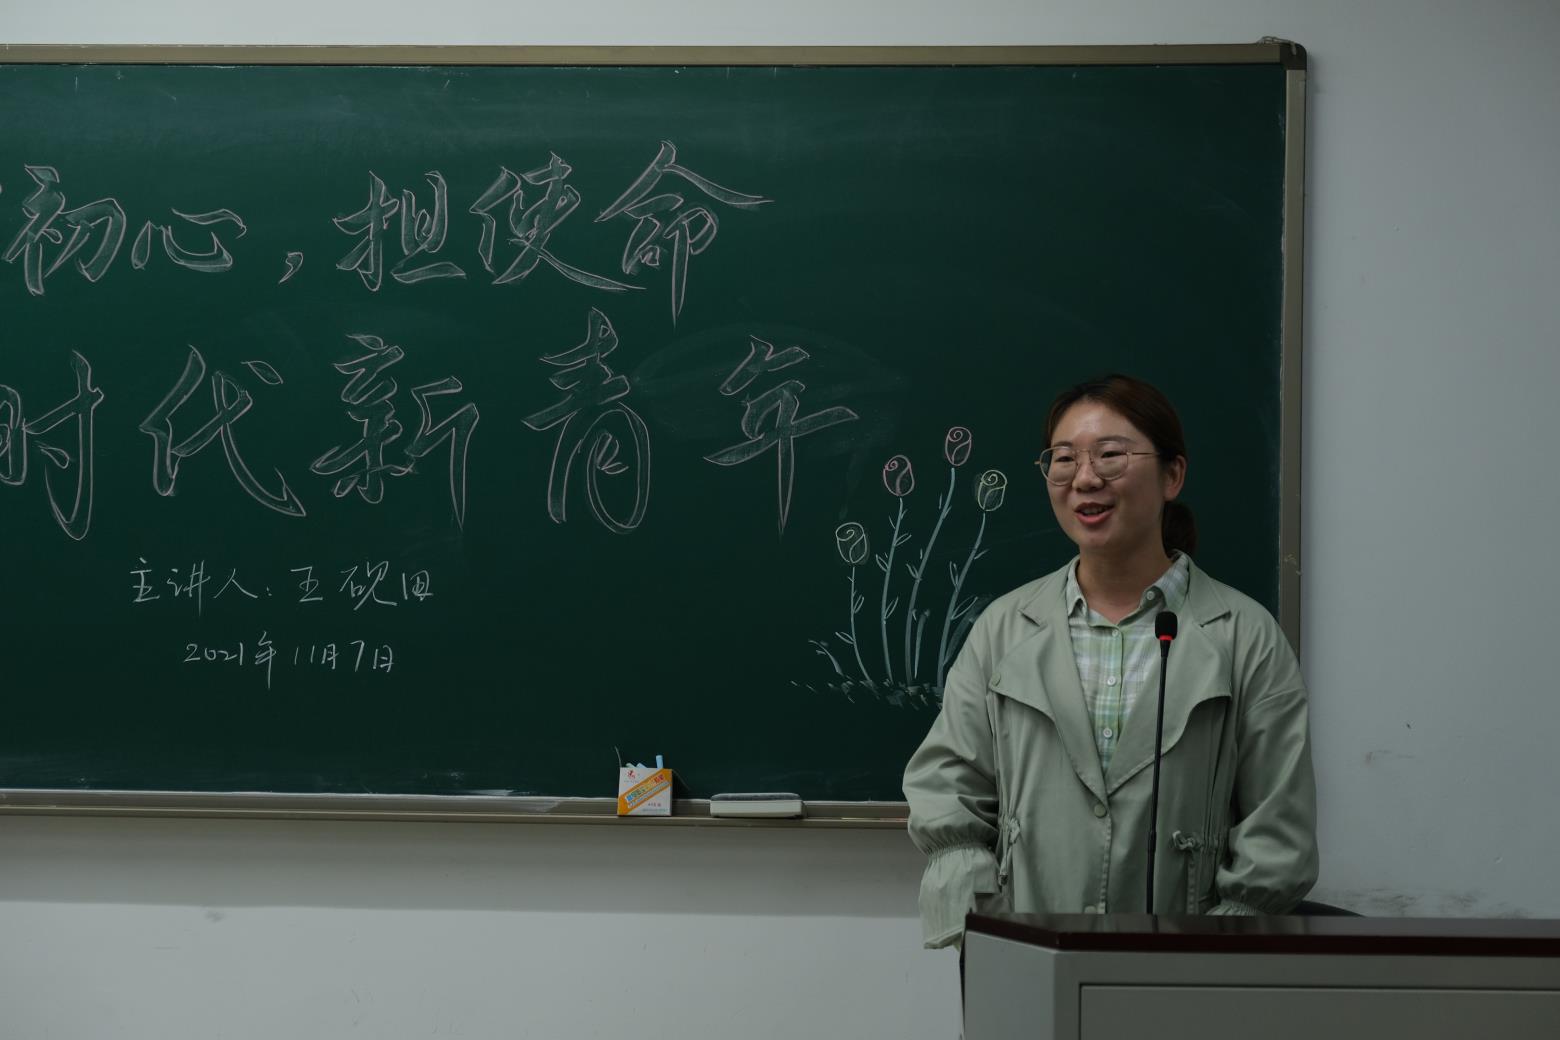 初心，担使命
时代新青年
主讲人：王砚田
2021年11月7日